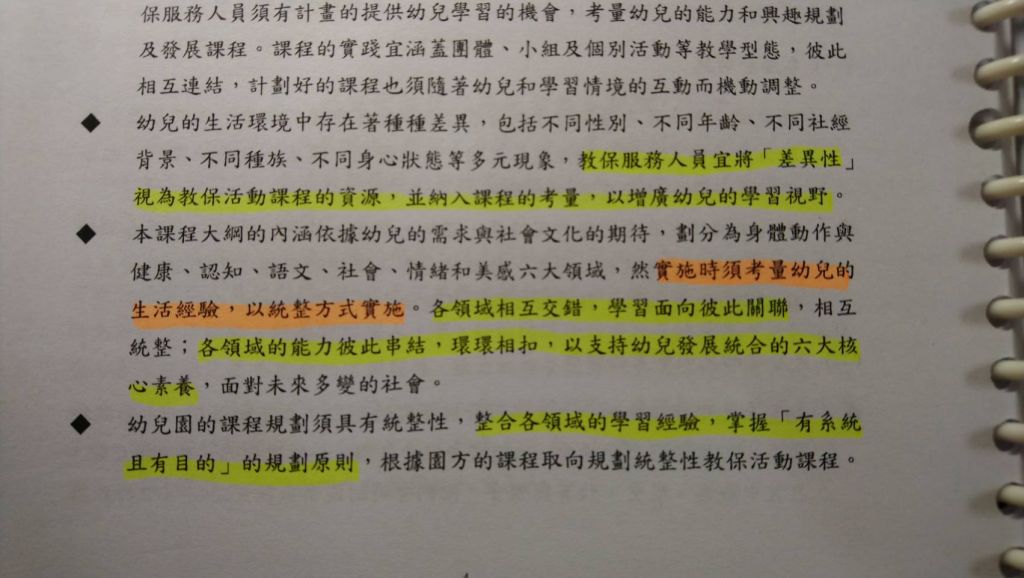 保服務人員須有計畫的提供幼兒學習的機會，考量幼兒的能力和興趣規劃
及發展課程。課程的實踐宜涵蓋團體、小組及個別活動等教學型態，彼此
相互連結，計劃好的課程也須隨著幼兒和學習情境的互動而機動調整。
◆ 幼兒的生活環境中存在著種種差異，包括不同性別、不同年齡、不同社經
背景、不同種族、不同身心狀態等多元現象，教保服務人員宜將「差異性」
視為教保活動課程的資源，並納入課程的考量，以增廣幼兒的學習視野。
◆ 本課程大綱的內涵依據幼兒的需求與社會文化的期待，劃分為身體動作與
健康、認知、語文、社會、情緒和美感六大領域，然實施時須考量幼兒的
生活經驗，以統整方式實施。各領域相互交錯，學習面向彼此關聯，相互
統整；各領域的能力彼此串結，環環相扣，以支持幼兒發展統合的六大核
心素養，面對未來多變的社會。
◆ 幼兒園的課程規劃須具有統整性，整合各領域的學習經驗，掌握「有系統
且有目的」的規劃原則，根據園方的課程取向規劃統整性教保活動課程。